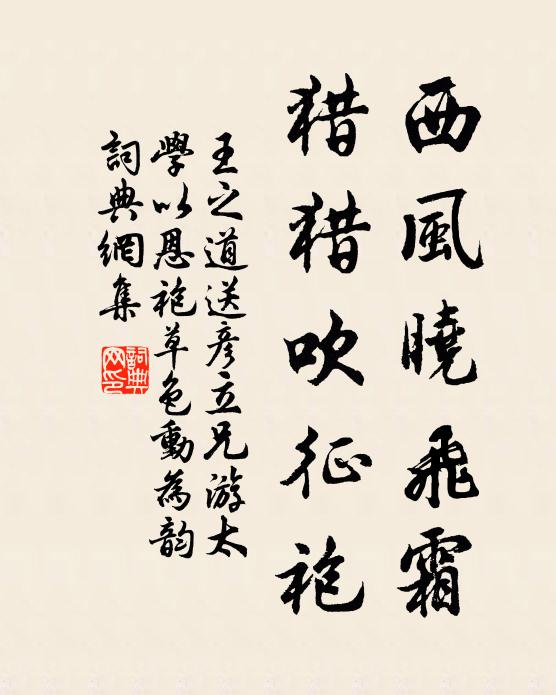 西風曉飛霜
猎猎吹征袍
王之道送彥立兄游太
學以恩袍草色動為韵
詞典網集
詞典网印